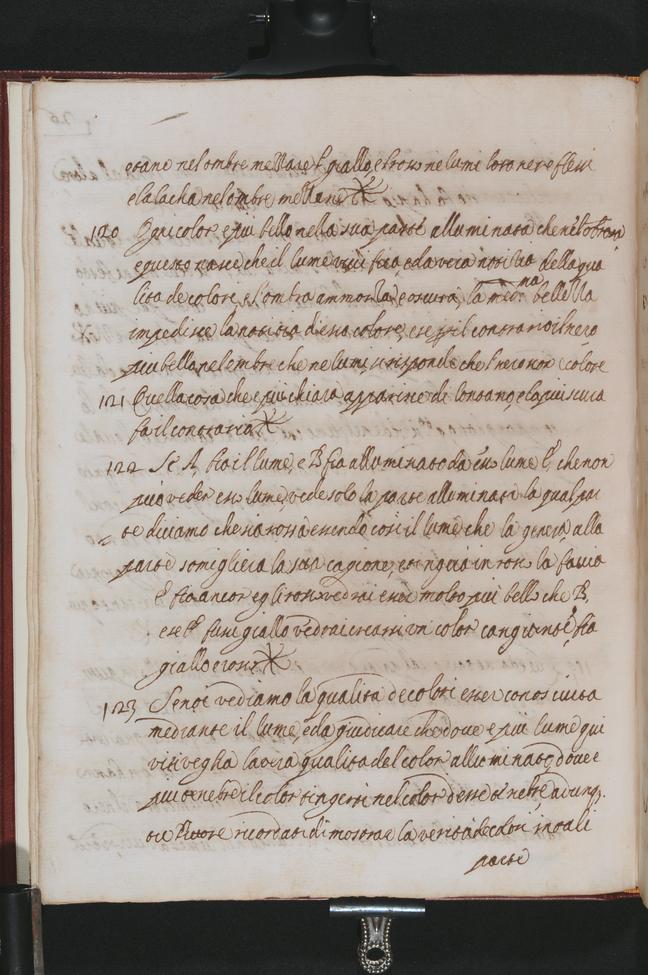 e sano nel ombre mettare il giallo e rosso ne lumi loro ne reflessi
e la lacha nel ombre mettano
120 Ogni color e piu bello nella sua parte alluminata che nel ombra
e questo nasce che il lume vivi fica, e da vera notitia della qua
lita de colori, e l'ombra ammorta, e oscura, la med.ma bellezza
impedisce la notitia d'esso colore, e se p il contrario il nero
piu bello nel ombre che ne lumi, si risponde che l nero non e colore
121 Quella cosa che e piu chiara apparisce di lontano, e la piu scura
fa il contrario
122 Se A, fia il lume, e B fia alluminato da esso lume E, che non
puo veder esso lume, vede solo la parte alluminata la qual par
te diciamo che sia rossa essendo così il lume, che la genera alla
parte somigliera la sua cagione, e tingera in rosso la faccia
E fia ancor egli rosso vedrai esser molto piu bello che B,
e se E fussi giallo vedrai crearsi un color cangiante, fia
giallo e rosso
123 Se noi vediamo la qualita de colori esser conosciuta
mediante il lume, e da giudicare che dove e piu lume qui
vi si vegha la vera qualita del color alluminato, dove e
piu tenebre il color tingersi nel color d esse tenebre, adunq.
o tu Pittore ricordati di mostrar la verità de colori in tali
parte